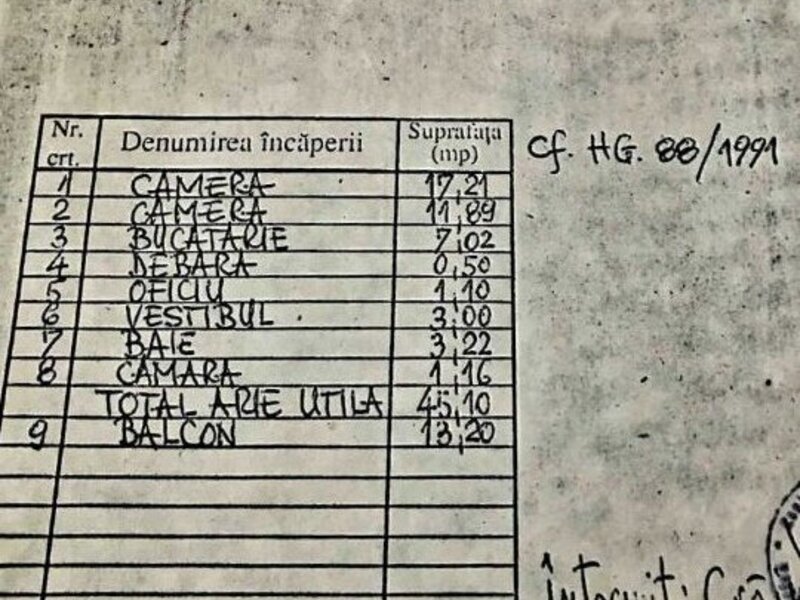 Nr. crt. Denumirea încăperii Suprafața (mp)
cf. HG. 88/1991
1 CAMERA 17,21
2 CAMERA 11,89
3 BUCATARIE 7,02
4 DEBARA 0,50
5 OFICIU 1,10
6 VESTIBUL 3,00
7 BAIE 3,22
8 CAMARA 1,16
TOTAL ARIE UTILA 45,10
9 BALCON 13,20
Întocmit: